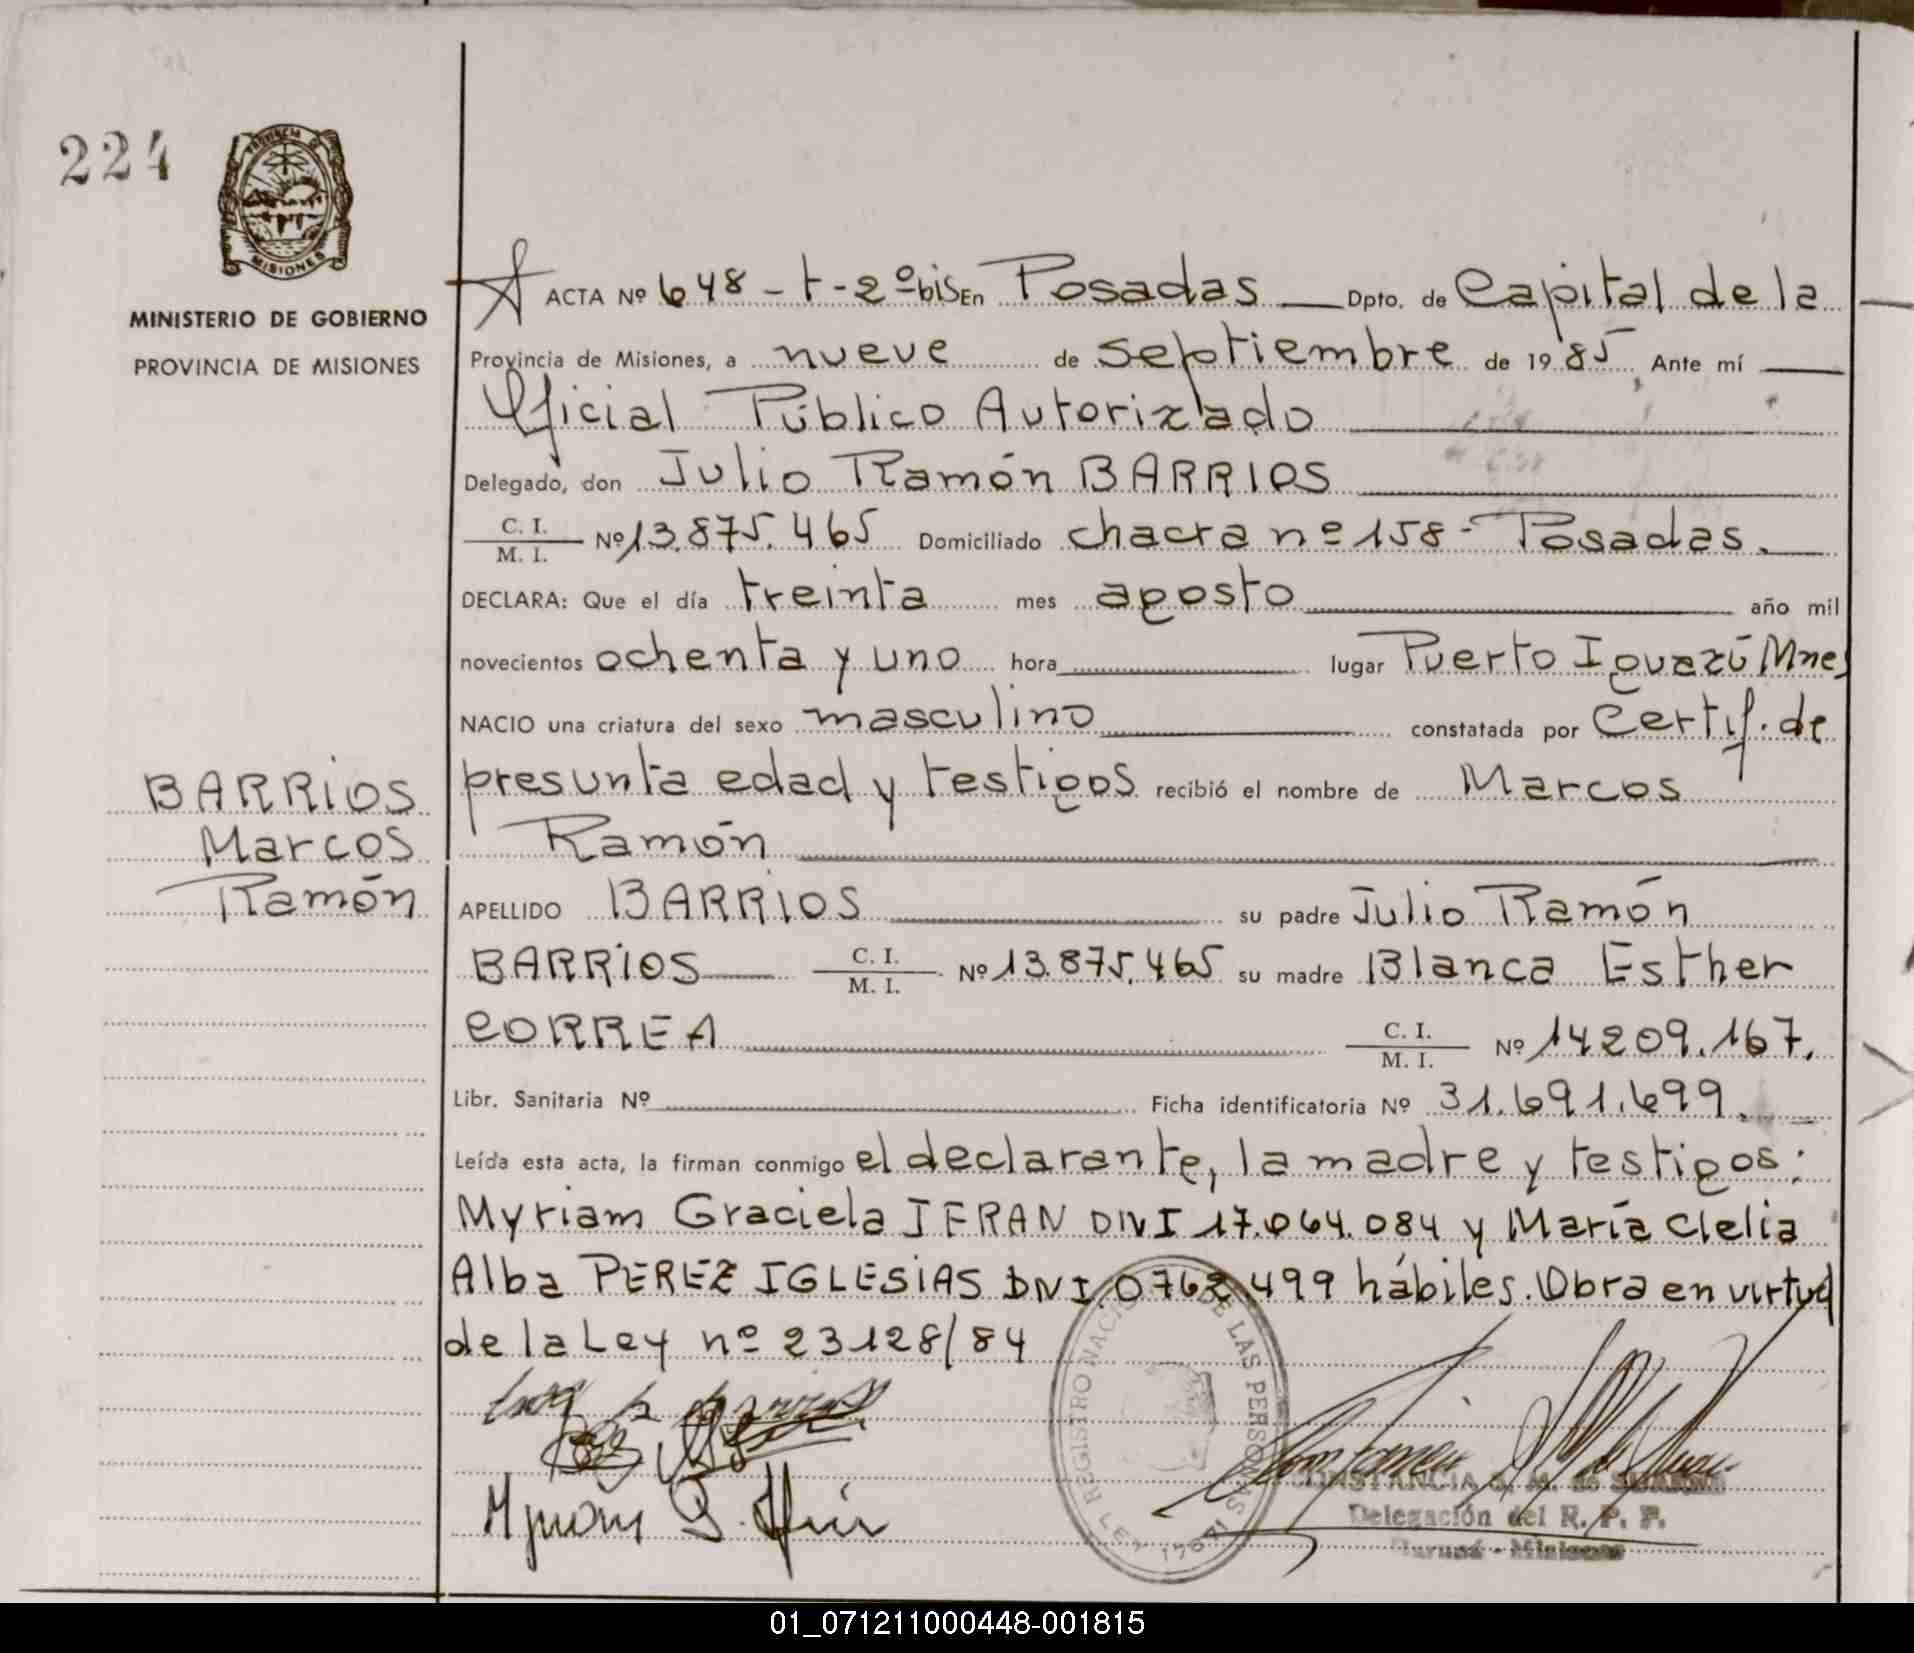 224
PROVINCIA DE
MISIONES
MINISTERIO DE GOBIERNO
PROVINCIA DE MISIONES
ACTA Nº 648 - t - 2º bis En Posadas Dpto. de Capital de la
Provincia de Misiones, a nueve de septiembre de 19 85 Ante mí
Oficial Público Autorizado
Delegado, don Julio Ramón BARRIOS
C. I.
M. I. Nº 13.875.465 Domiciliado chacra nº 158 - Posadas.
DECLARA: Que el día treinta mes agosto año mil
novecientos ochenta y uno hora lugar Puerto Iguazú Mnes
NACIO una criatura del sexo masculino constatada por Certif. de
presunta edad y testigos recibió el nombre de Marcos
Ramón
BARRIOS
Marcos
Ramón
APELLIDO BARRIOS su padre Julio Ramón
BARRIOS C. I.
M. I. Nº 13.875.465 su madre Blanca Esther
CORREA C. I.
M. I. Nº 14209.167.
Libr. Sanitaria Nº Ficha identificatoria Nº 31.691.699.
Leída esta acta, la firman conmigo el declarante, la madre y testigos:
Myriam Graciela DNI 17.064.084 y María Clelia
Alba PEREZ IGLESIAS DNI. 0762.499 hábiles. Obra en virtud
de la Ley nº 23128/84
REGISTRO NACIONAL DE LAS PERSONAS
LEY 17671
CONSTANCIA
Delegación del R. P. P.
Misiones
01_071211000448-001815